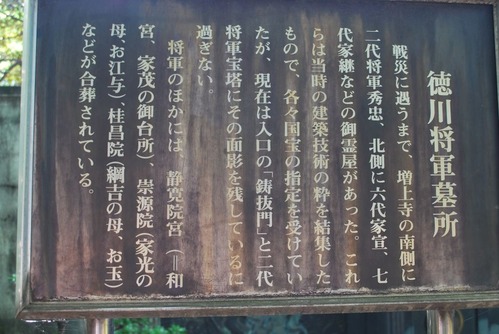 徳川将軍墓所
戦災に遇うまで、増上寺の南側に
二代将軍秀忠、北側に六代家宣、七
代家継などの御霊屋があった。これ
らは当時の建築技術の粋を結集した
もので、各々国宝の指定を受けてい
たが、現在は入口の「鋳抜門」と二代
将軍宝塔にその面影を残しているに
過ぎない。
将軍のほかには、静寛院宮(=和
宮、家茂の御台所)、崇源院(家光の
母、お江与)、桂昌院(綱吉の母、お玉)
などが合葬されている。